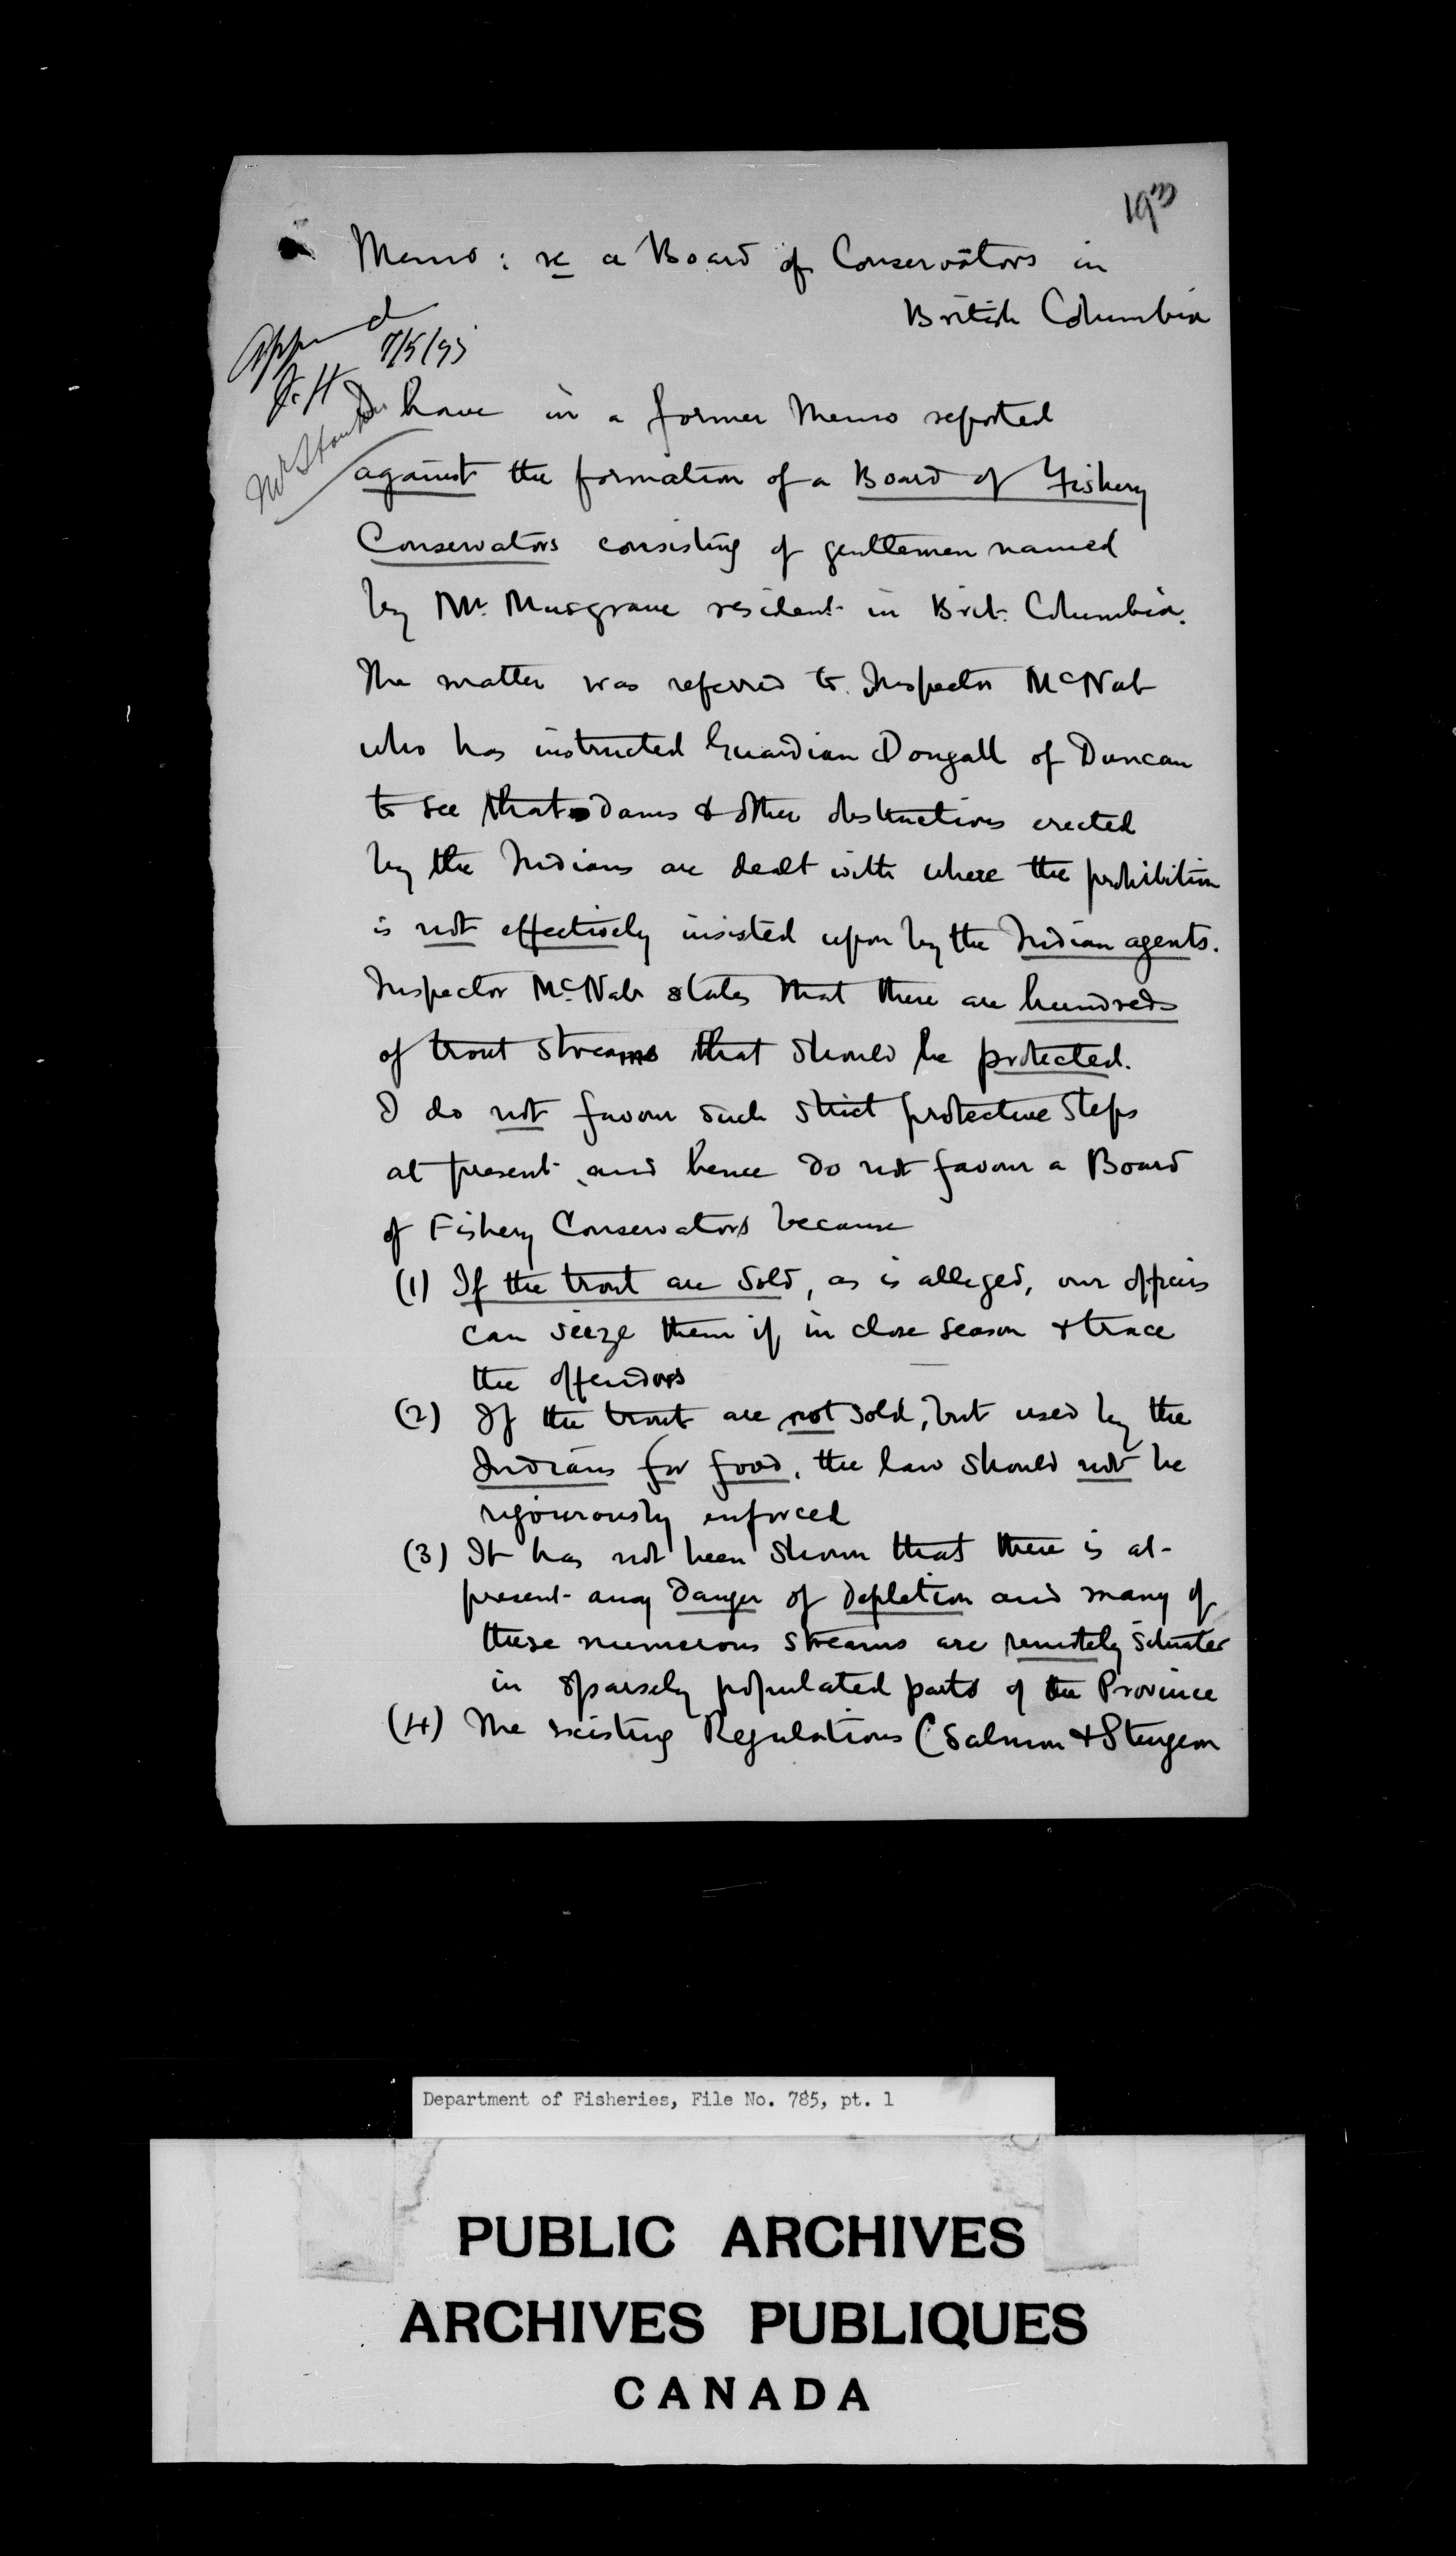 Memo: re a Board of Conservators in
British Columbia
7/5/95
I have in a former Memo reported
against the formation of a Board of Fishery
Conservators consisting of gentlemen named
by Mr. Musgrave resident in Brit. Columbia.
The matter was referred to Inspector McNab
who has instructed Guardian Dougall of Duncan
to see that dams & other obstructions erected
by the Indians are dealt with where the prohibition
is not effectively insisted upon by the Indian agents.
Inspector McNab states that there are hundreds
of trout streams that should be protected.
I do not favour such strict protective steps
at present and hence do not favour a Board
of Fishery Conservators because
(1) If the trout are sold, as is alleged, our officers
can seize them if in close season & trace
the offendors
(2) If the trout are not sold, but used by the
Indians for food, the law should not be
rigourously enforced
(3) It has not been shown that there is at-
present any danger of depletion and many of
these numerous streams are remotely situated
in sparsely populated parts of the Province
(4) The existing Regulations (Salmon & Sturgeon
Department of Fisheries, File No. 785, pt. 1
PUBLIC ARCHIVES
ARCHIVES PUBLIQUES
CANADA